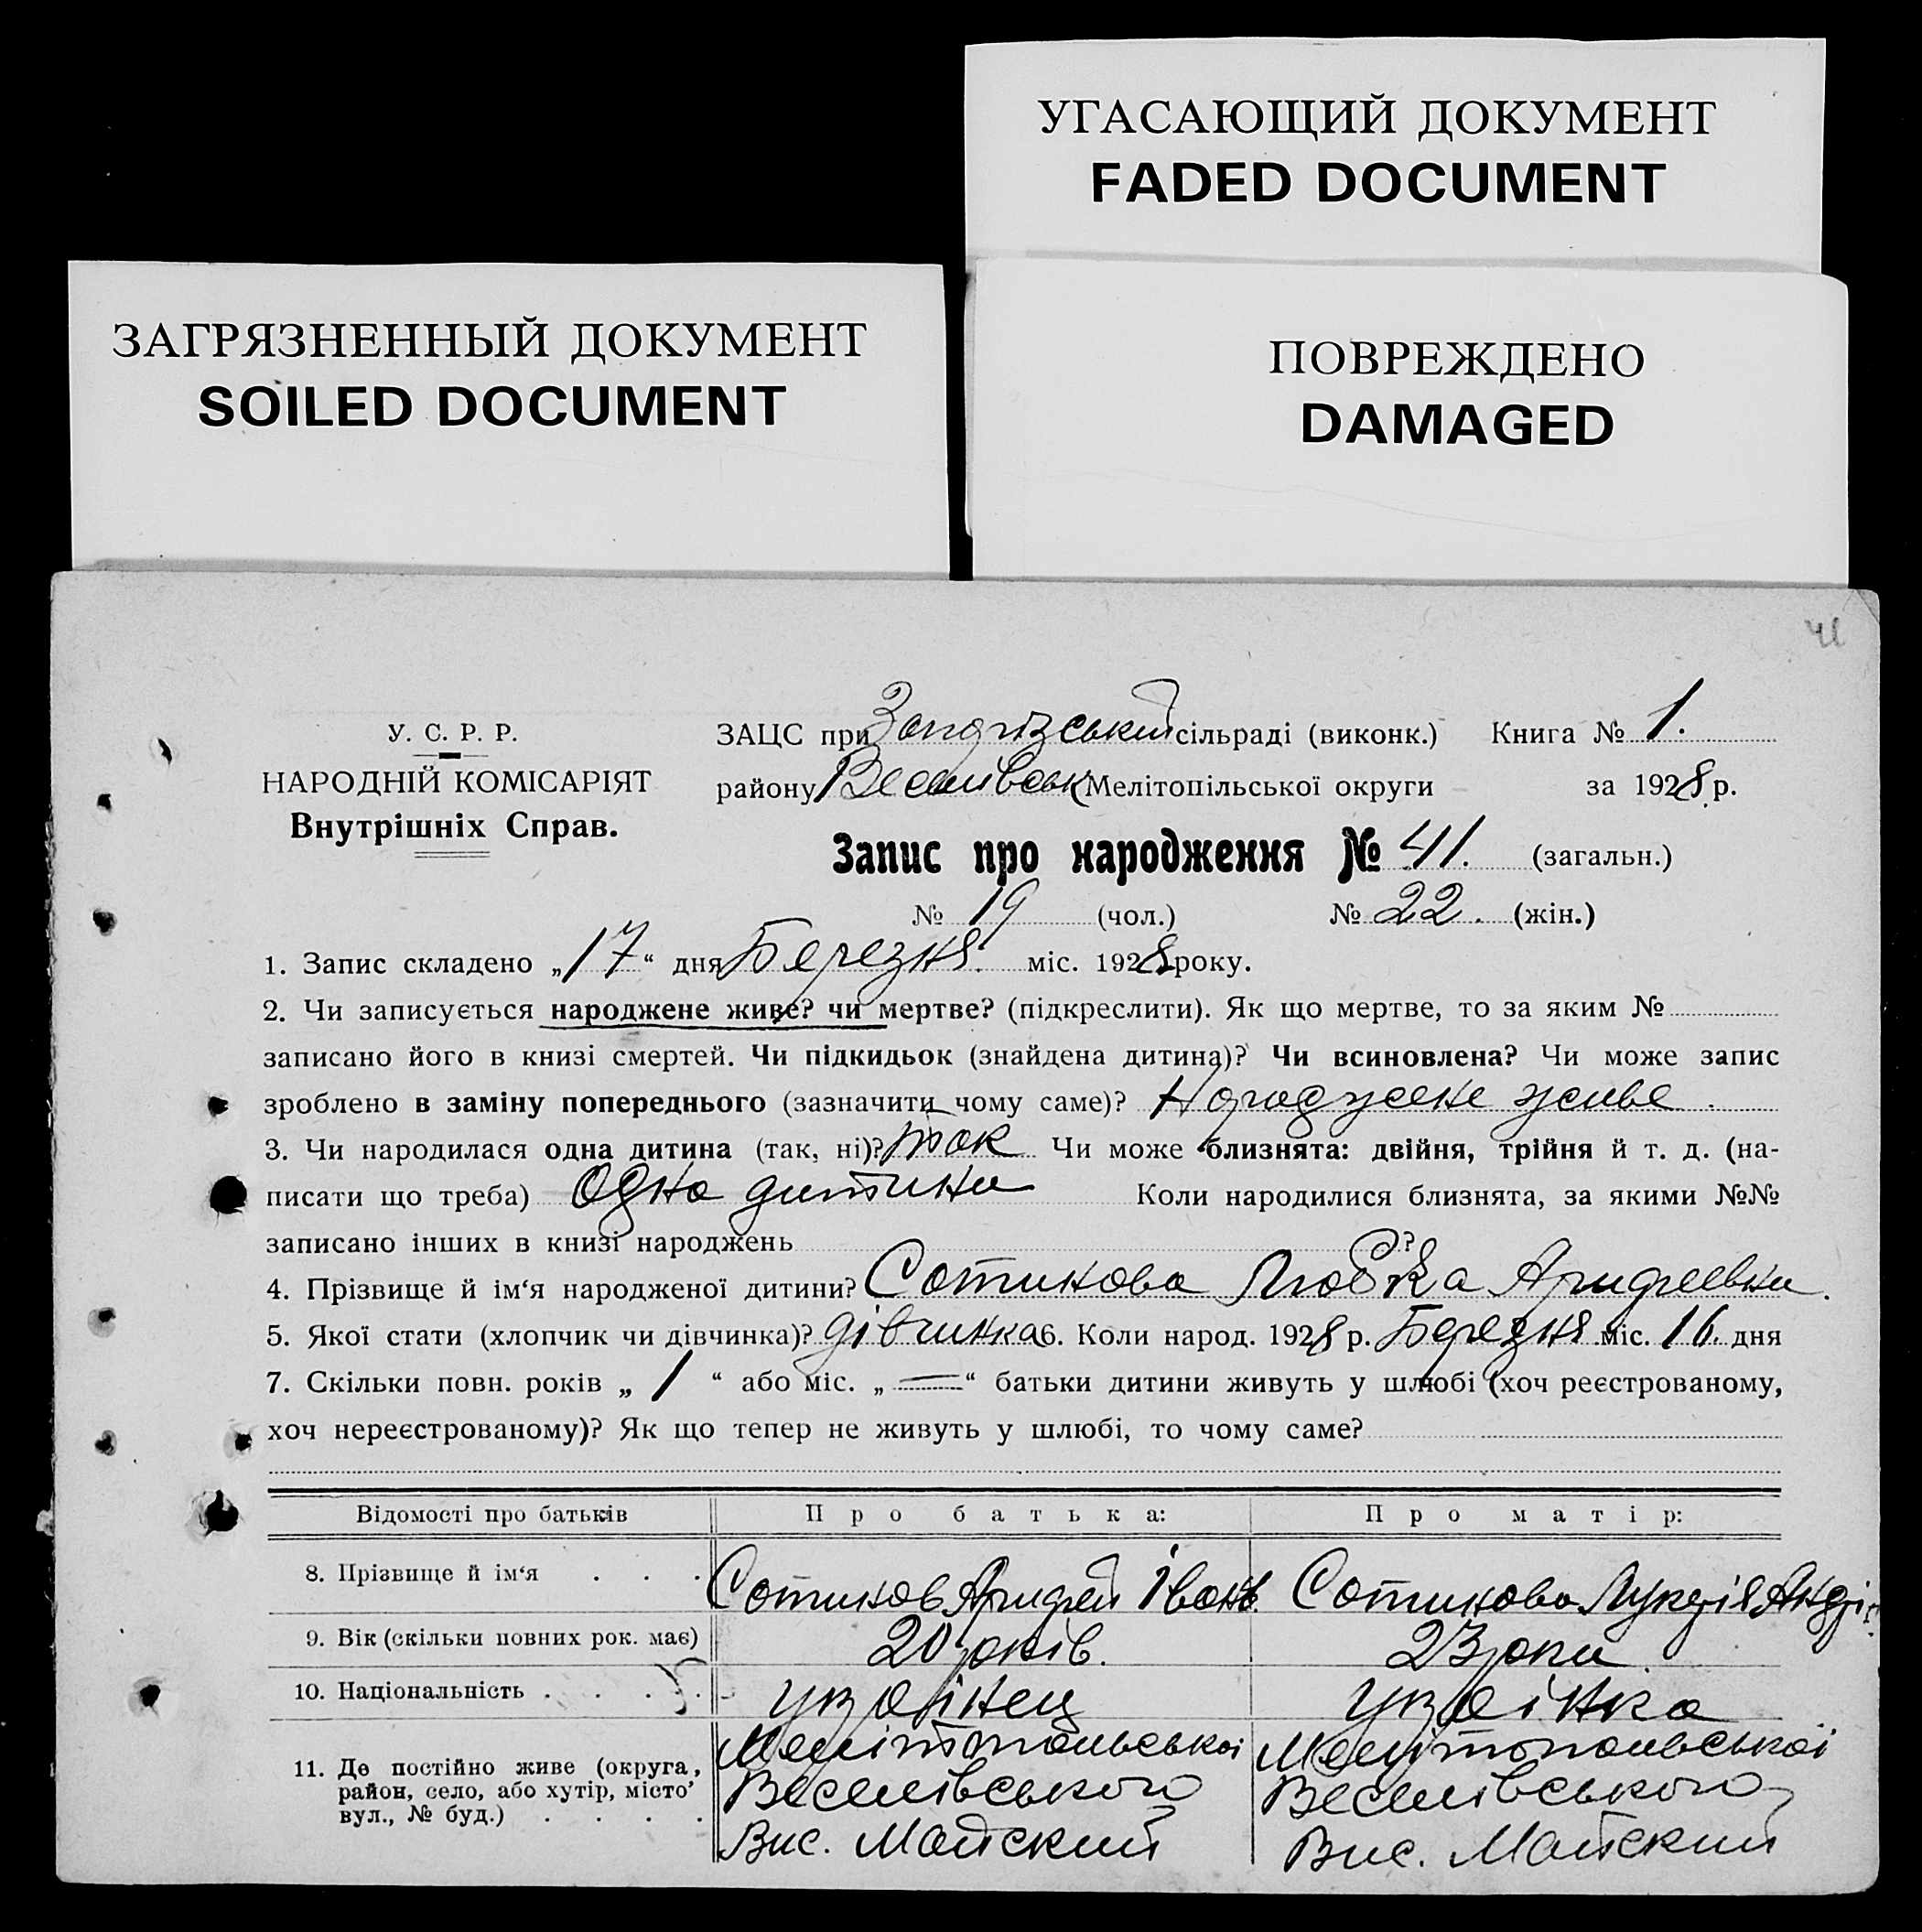 УГАСАЮЩИЙ ДОКУМЕНТ
FADED DOCUMENT
ЗАГРЯЗНЕННЫЙ ДОКУМЕНТ
SOILED DOCUMENT
ПОВРЕЖДЕНО
DAMAGED
41
У. С. Р. Р.
НАРОДНІЙ КОМІСАРІЯТ
Внутрішніх Справ.
ЗАЦС при сільраді (виконк.) Книга № 1.
району Веселівськ Мелітопільської округи за 1928 р.
Запис про народження № 41. (загальн.)
№ 19 (чол.) № 22. (жін.)
1. Запис складено „17“ дня Березня. міс. 1928 року.
2. Чи записується народжене живе? чи мертве? (підкреслити). Як що мертве, то за яким №
записано його в книзі смертей. Чи підкидьок (знайдена дитина)? Чи всиновлена? Чи може запис
зроблено в заміну попереднього (зазначити чому саме)? Народжене живе.
3. Чи народилася одна дитина (так, ні)? так Чи може близнята: двійня, трійня й т. д. (на-
писати що треба) Одна дитина Коли народилися близнята, за якими №№
записано інших в книзі народжень ?
4. Прізвище й ім‘я народженої дитини? Сотникова Любка
5. Якої стати (хлопчик чи дівчинка)? дівчинка 6. Коли народ. 1928 р. Березня міс. 16. дня
7. Скільки повн. років „ 1 “ або міс. „ — “ батьки дитини живуть у шлюбі (хоч реєстрованому,
хоч нереєстрованому)? Як що тепер не живуть у шлюбі, то чому саме?
Відомості про батьків Про батька: Про матір:
8. Прізвище й ім‘я . . . Сотников Іванв. Сотникова Лукерія Андрі
9. Вік (скільки повних рок. має) 20 років. 23 роки.
10. Національність . . . . українец українка
11. Де постійно живе (округа, район, село, або хутір, місто’ вул., № буд.) . . . .
Мелітопольської Мелітопольської
Веселівського Веселівського
Вис. Майский Вис. Майский